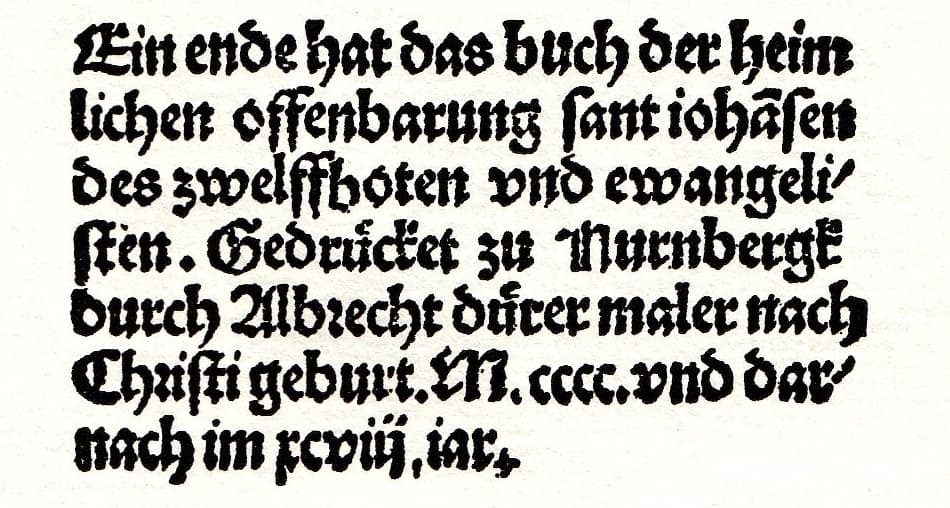 Ein ende hat das buch der heim
lichen offenbarung ſant iohāſen
des zwelffboten vnd ewangeli/
ſten. Gedrućket zu Nurnbergk
durch Albrecht dürer maler nach
Chriſti geburt. M. cccc. vnd dar/
nach im xcviij. iar.